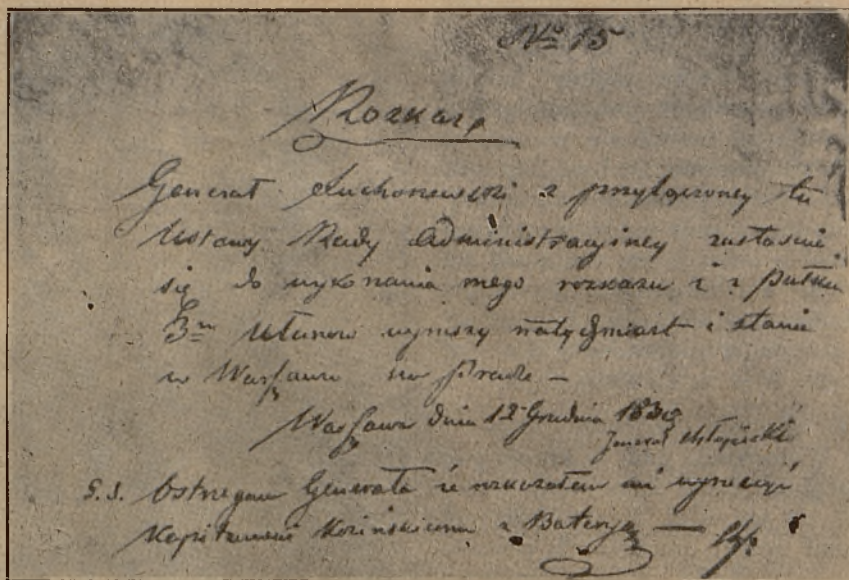 No 15
Rozkaz
Generał Suchorzewski z przyłączoney tu
Ustawy Rady Administracyiney zastosuie
się do wykonania mego rozkazu i z pułkiem
3m Ułanow wyruszy natychmiast i stanie
w Warszawie na Pradze —
Warszawa dnia 12 Grudnia 1830
Jenerał Chłopicki
Ostrzegam Generała że rozkazałem wyruszyć
Kapitanowi Kozińskiemu z Bateryą —